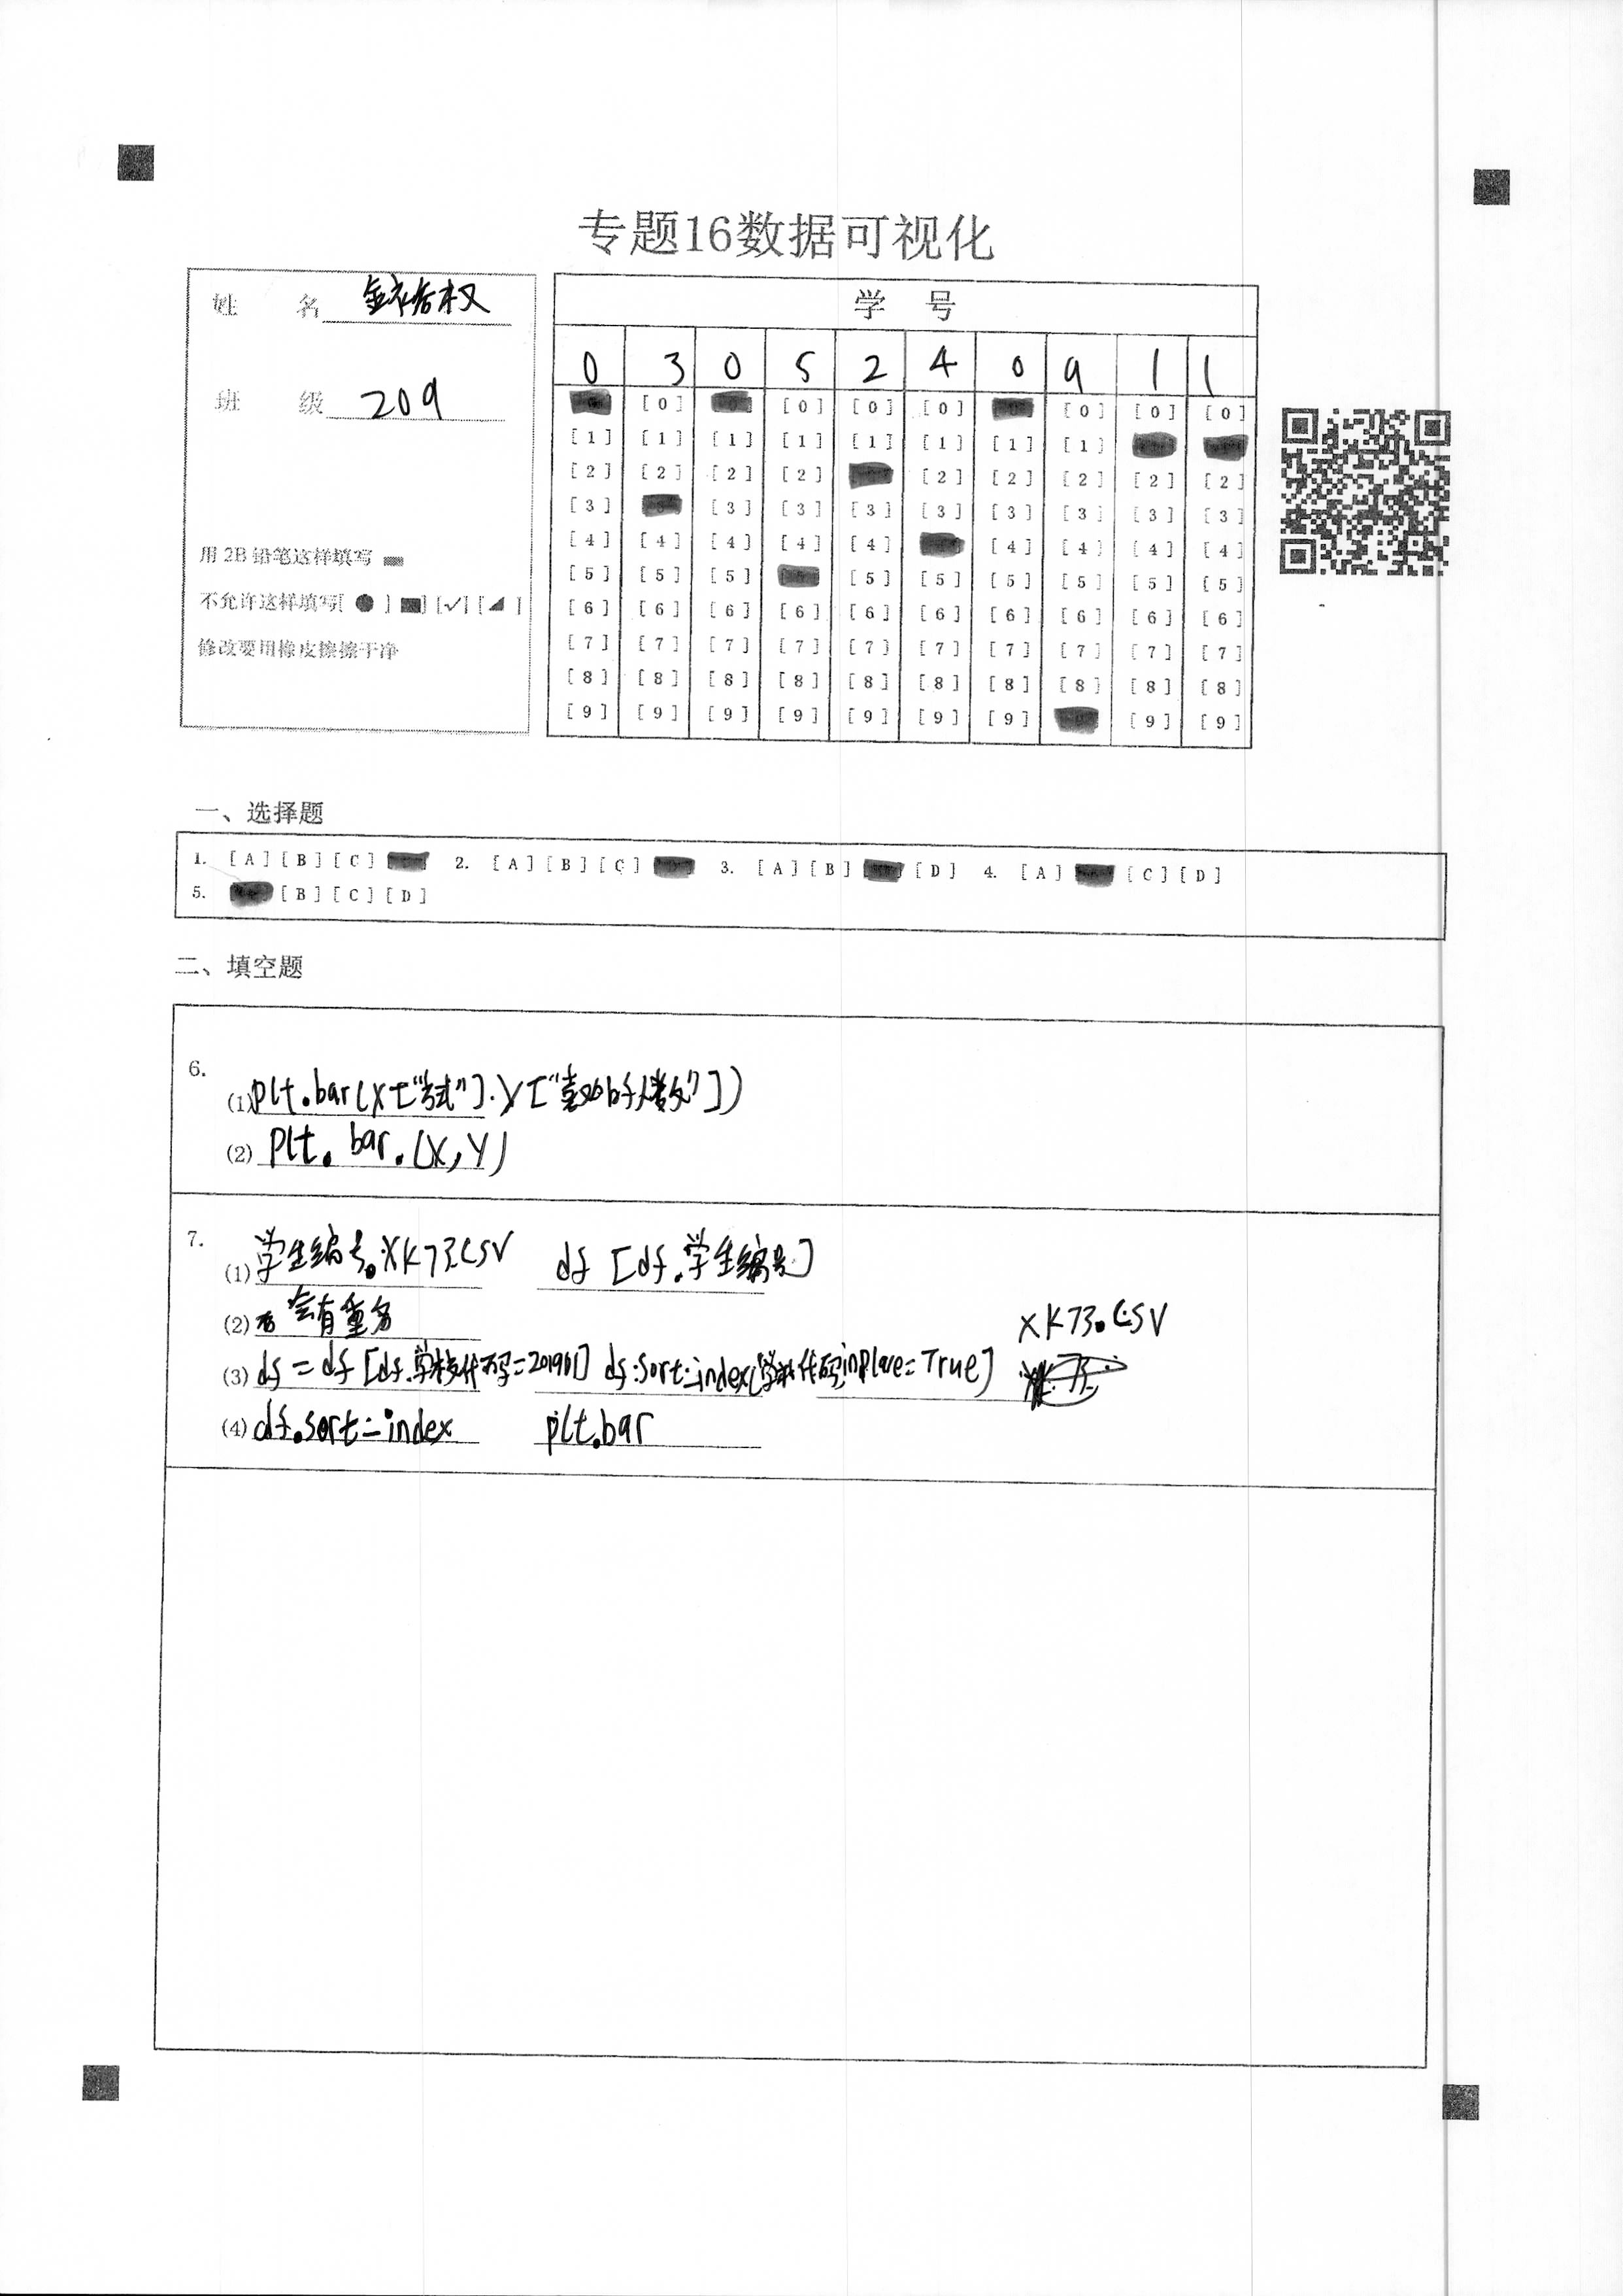 专题16数据可视化
姓 名 金
班 级 209
用 2B 铅笔这样填写
不允许这样填写[ ● ] [■] [✓] [◢ ]
修改要用橡皮擦擦干净
学 号
0 3 0 5 2 4 0 9 1 1
[0] [0] [0] [0] [0] [0]
[1] [1] [1] [1] [1] [1] [1] [1]
[2] [2] [2] [2] [2] [2] [2] [2] [2]
[3] [3] [3] [3] [3] [3] [3] [3] [3]
[4] [4] [4] [4] [4] [4] [4] [4] [4]
[5] [5] [5] [5] [5] [5] [5] [5] [5]
[6] [6] [6] [6] [6] [6] [6] [6] [6] [6]
[7] [7] [7] [7] [7] [7] [7] [7] [7] [7]
[8] [8] [8] [8] [8] [8] [8] [8] [8] [8]
[9] [9] [9] [9] [9] [9] [9] [9] [9]
一、选择题
1. [A] [B] [C] 2. [A] [B] [C] 3. [A] [B] [D] 4. [A] [C] [D]
5. [B] [C] [D]
二、填空题
6.
(1) plt.bar(x["方式"].y["喜欢的人数"])
(2) plt. bar.(x,y)
7.
(1) 学生编号.XK73.CSV df [df.学生编号]
(2) 会有重名
xk73.CSV
(3) df = df [df.学校代码=201961] df.sort-index(学校代码inplave=True]
(4) df.sort-index plt.bar